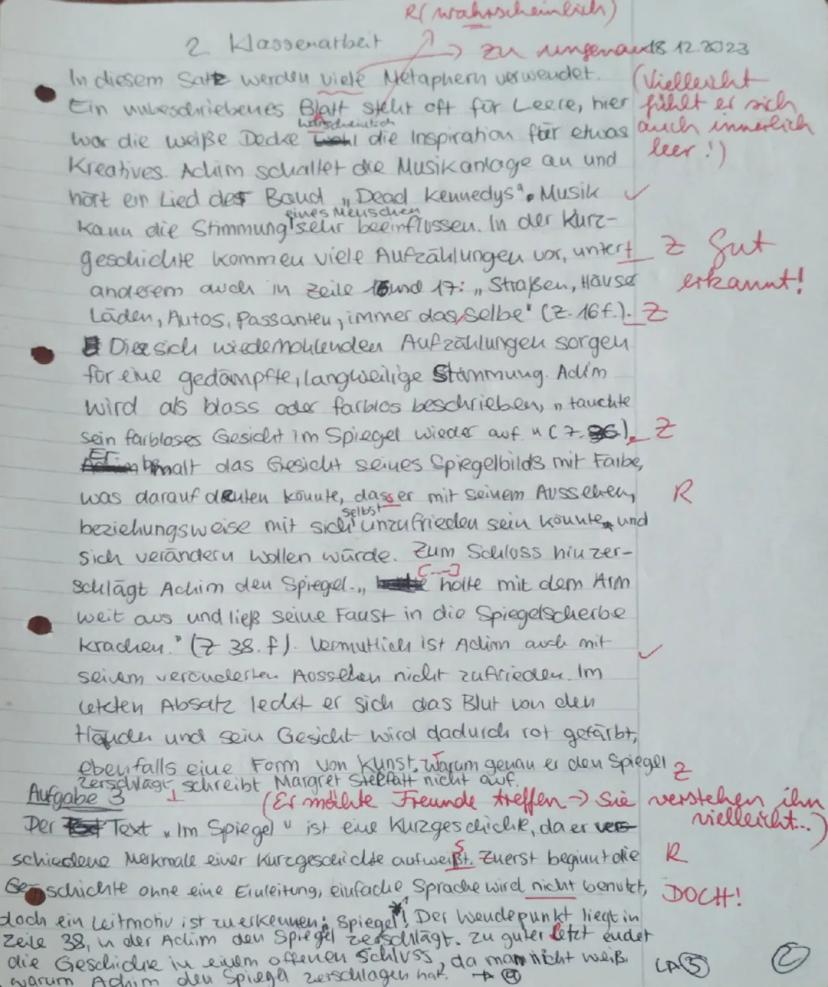 R (wahrscheinlich)
2 Klassenarbeit → zu ungenau 18.12.2023
In diesem Satz werden viele Metaphern verwendet. (Vielleicht
Ein unbeschriebenes Blatt steht oft für Leere, hier fühlt er sich
wahrscheinlich
war die weiße Decke wohl die Inspiration für etwas auch innerlich
Kreatives. Achim schaltet die Musikanlage an und leer!)
hört ein Lied der Band „Dead Kennedys". Musik ✓
eines Menschen
kann die Stimmung sehr beeinflussen. In der Kurz-
geschichte kommen viele Aufzählungen vor, unter Z Gut
anderem auch in Zeile 16 und 17: „Straßen, Häuser erkannt!
Läden, Autos, Passanten, immer das selbe" (Z. 16 f.). Z
Die sich wiederholenden Aufzählungen sorgen
für eine gedämpfte, langweilige Stimmung. Achim
wird als blass oder farblos beschrieben, „tauchte
sein farbloses Gesicht im Spiegel wieder auf" (Z. ). Z
Er bemalt das Gesicht seines Spiegelbilds mit Farbe,
was darauf deuten könnte, dass er mit seinem Aussehen, R
selbst
beziehungsweise mit sich unzufrieden sein könnte und
sich verändern wollen würde. Zum Schluss hin zer-
[...]
schlägt Achim den Spiegel. „ holte mit dem Arm
weit aus und ließ seine Faust in die Spiegelscherbe
krachen." (Z 38. f). Vermutlich ist Achim auch mit ✓
seinem veränderten Aussehen nicht zufrieden. Im
letzten Absatz leckt er sich das Blut von den
Händen und sein Gesicht wird dadurch rot gefärbt,
ebenfalls eine Form von Kunst, warum genau er den Spiegel Z
zerschlägt schreibt Margret nicht auf.
Aufgabe 3 (Er möchte Freunde treffen → Sie verstehen ihn
vielleicht...)
Der Text „Im Spiegel" ist eine Kurzgeschichte, da er ver-
schiedene Merkmale einer Kurzgeschichte aufweißt. Zuerst beginnt die s R
Geschichte ohne eine Einleitung, einfache Sprache wird nicht benutzt, DOCH!
doch ein Leitmotiv ist zu erkennen: Spiegel*! Der Wendepunkt liegt in
Zeile 38, in der Achim den Spiegel zerschlägt. Zu guter letzt endet
die Geschichte in einem offenen Schluss, da man nicht weiß
warum Achim den Spiegel zerschlagen hat. →